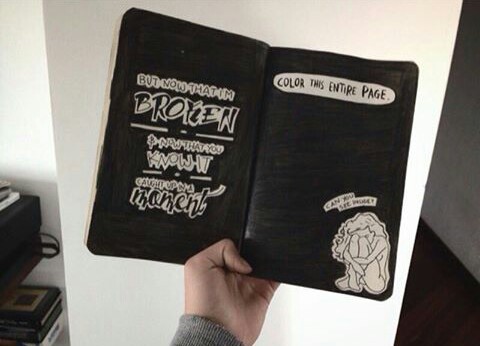 BUT NOW THAT I'M
BROKEN
& NOW THAT YOU
KNOW IT
CAUGHT UP IN A
moment
COLOR THIS ENTIRE PAGE.
CAN YOU
SEE INSIDE?